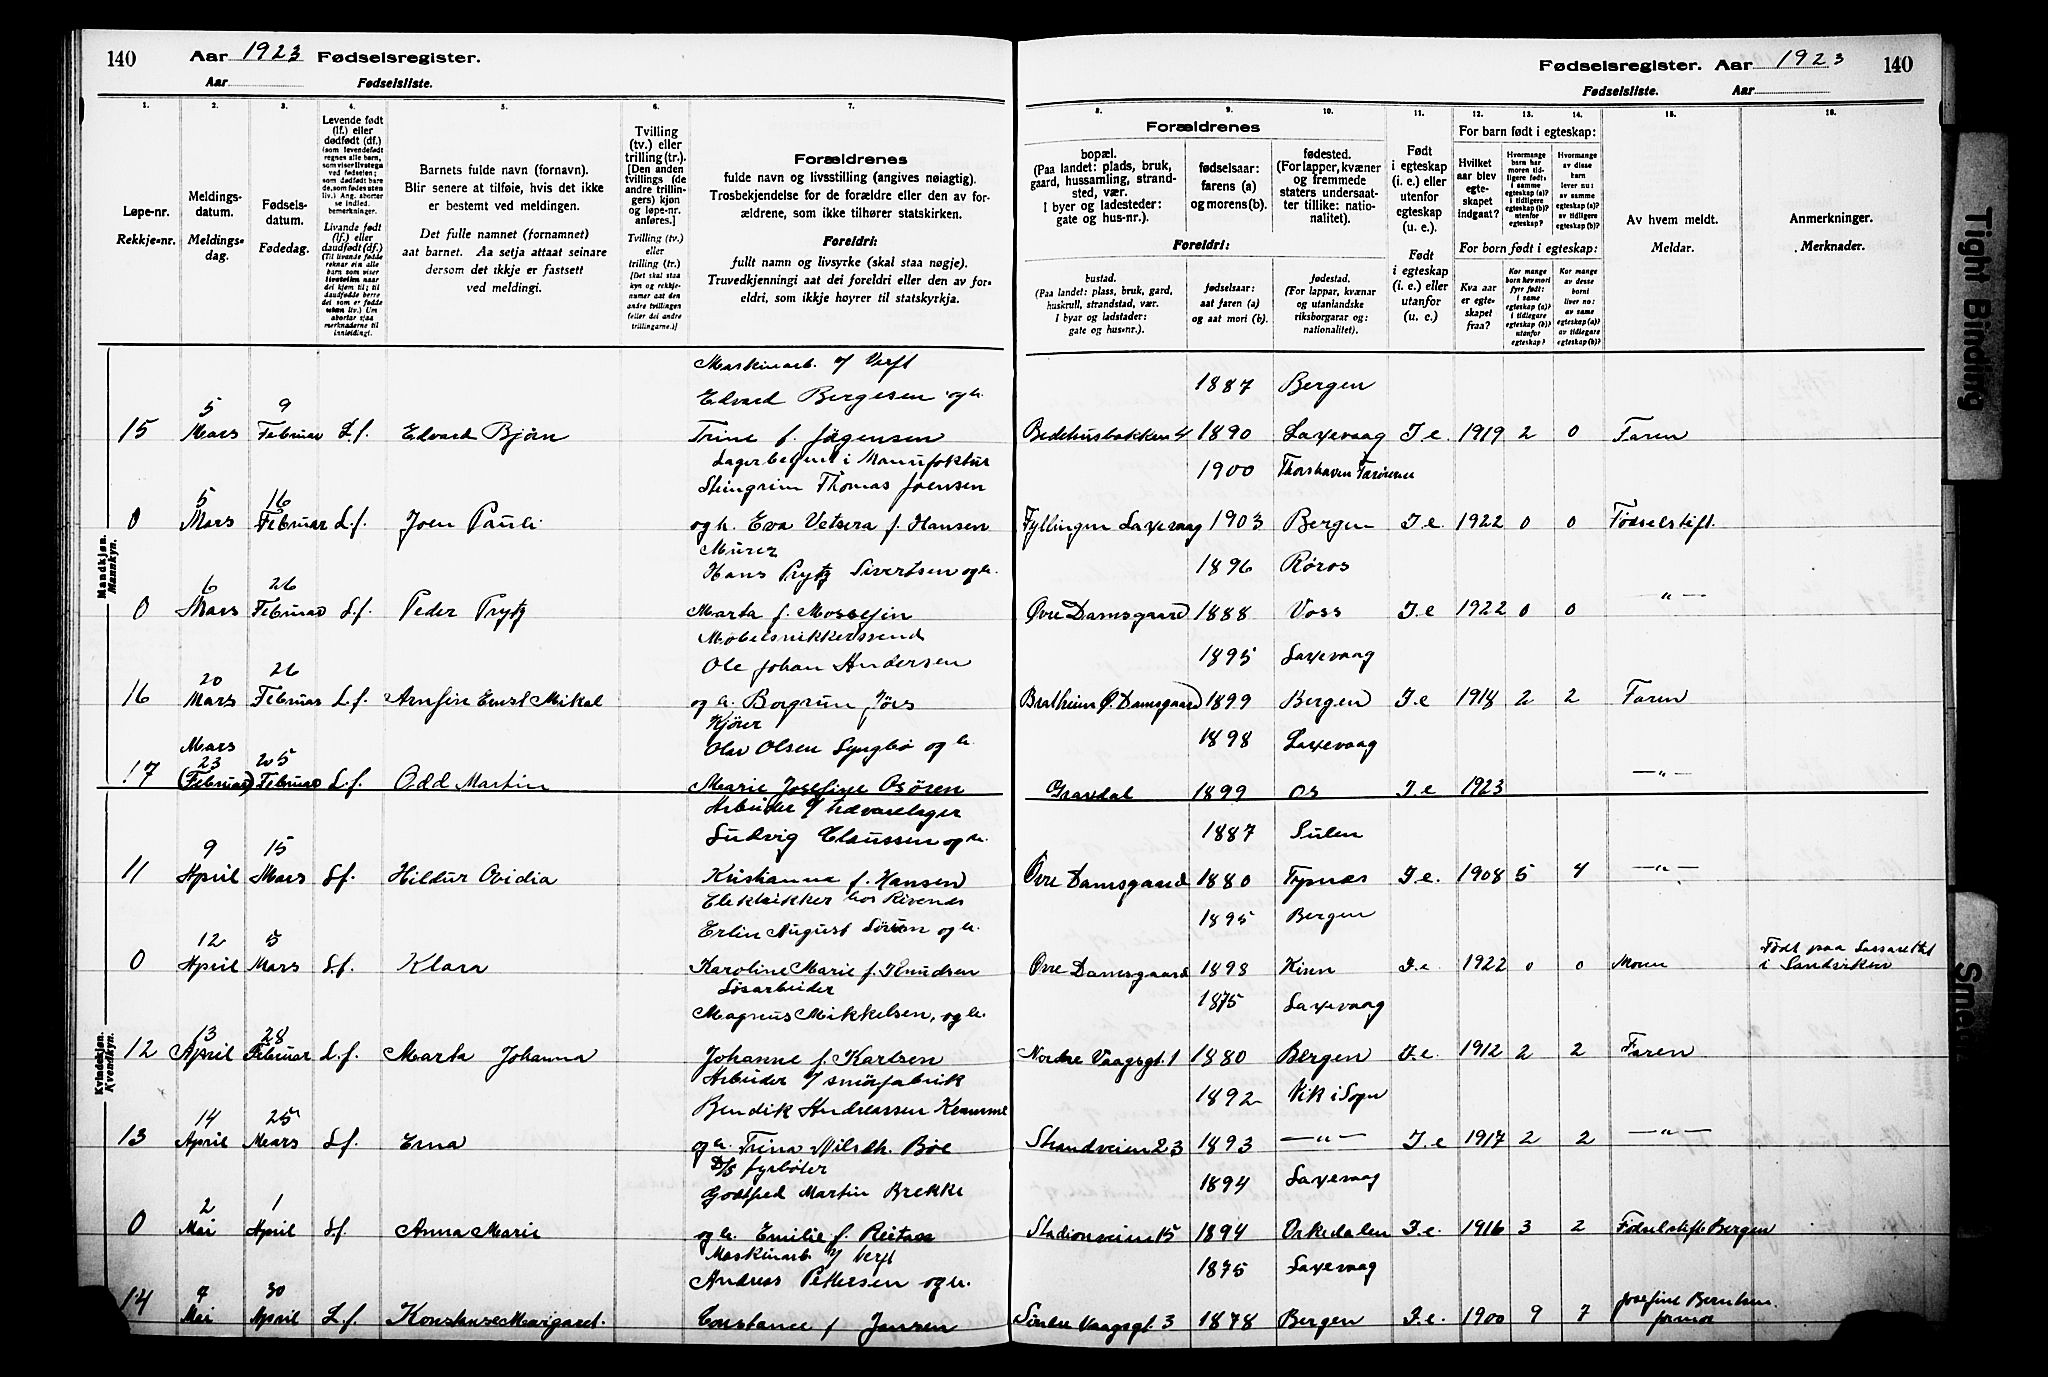 140 Aar 1923 Fødselsregister.
Aar Fødselsliste.
Fødselsregister. Aar 1923 140
Fødselsliste. Aar
1. 2. 3. 4. 5. 6. 7.
Løpe-nr.
Rekkje-nr.
Meldings-
datum.
Meldings-
dag.
Fødsels-
datum.
Fødedag.
Levende født
(lf.) eller
dødfødt (df.)
Livande født
(lf.) eller
daudfødt (df.)
Barnets fulde navn (fornavn).
Blir senere at tilføie, hvis det ikke
er bestemt ved meldingen.
Det fulle namnet (fornamnet)
aat barnet. Aa setja attaat seinare
dersom det ikkje er fastsett
ved meldingi.
Tvilling
(tv.) eller
trilling (tr.).
[Den anden
tvillings (de
andre trillin-
gers) kjøn
og løpe-nr.
anføres.]
Tvilling (tv.)
eller
trilling (tr.)
[Det skal staa
kyn og rekkje-
numer aat den
andre tvillingen
(eller dei andre
trillingarne.)]
Forældrenes
fulde navn og livsstilling (angives nøiagtig).
Trosbekjendelse for de forældre eller den av for-
ældrene, som ikke tilhører statskirken.
Foreldri:
fullt namn og livsyrke (skal staa nøgje).
Truvedkjenningi aat dei foreldri eller den av for-
eldri, som ikkje høyrer til statskyrkja.
8. 9. 10. 11. 12. 13. 14. 15. 16.
Forældrenes
bopæl.
(Paa landet: plads, bruk,
gaard, hussamling, strand-
sted, vær.
I byer og ladesteder:
gate og hus-nr.).
fødselsaar:
farens (a)
og morens (b).
fødested.
(For lapper, kvæner
og fremmede
staters undersaat-
ter tillike: natio-
nalitet).
Foreldri:
bustad.
(Paa landet: plass, bruk, gard,
huskrull, strandstad, vær.
I byar og ladstader:
gate og hus-nr.).
fødselsaar:
aat faren (a)
og aat mori (b).
fødestad.
(For lappar, kvænar
og utanlandske
riksborgarar og:
nationalitet).
Født
i egteskap
(i. e.) eller
utenfor
egteskap
(u. e.).
Født
i egteskap
(i. e.) eller
utanfor
(u. e.).
For barn født i egteskap:
Hvilket
aar blev
egte-
skapet
indgaat?
For born født i egteskap:
Kva aar
er egte-
skapet
fraa?
Av hvem meldt.
Meldar.
Anmerkninger.
Merknader.
Mandkjøn.
Mannkyn.
Maskinarb. v/ Verft
Edvard Bergesen og h. 1887 Bergen
15 5 Mars 9 Februar L.f. Edvard Bjørn Trine f. Jørgensen Bedehusbakken 4 1890 Laxevaag I e 1919 2 0 Faren
Lagerbetjent i Manufaktur
Thomas Joensen 1900 Thorshavn Færøerne
0 5 Mars 16 Februar L.f. Joen Pauli og h. Eva Vetsera f. Hansen Fyllingen Laxevaag 1903 Bergen I e 1922 0 0 Fødselstift.
Murer
Hans Prytz Sivertsen og h. 1896 Røros
0 6 Mars 26 Februar L.f. Peder Prytz Marta f. Mossefin Øvre Damsgaard 1888 Voss I e 1922 0 0 —"—
Møbelsnikkersvend
Ole Johan Andersen 1895 Laxevaag
16 20 Mars 26 Februar L.f. Arnfin Ernst Mikal og h. Borgrun Jørs Bratheim Ø. Damsgaard 1899 Bergen I e 1918 2 2 Faren
Kjører
Olav Olsen Lyngbø og h. 1898 Laxevaag
17 Mars 23 (Februar) 25 Februar L.f. Odd Martin Marie Josefine Osøren Gravdal 1899 Os I e 1923 —"—
Kvindekjøn.
Kvendkyn.
Arbeider v/ Isvarelager
Ludvig Claussen og h. 1887 Sulen
11 9 April 15 Mars L.f. Hildur Ovidia Kristianna f. Hansen Øvre Damsgaard 1880 Tysnæs I e. 1908 5 4 —"—
Elektrikker hos
Erlin August og h. 1895 Bergen
0 12 April 5 Mars L.f. Klara Karoline Marie f. Knudsen Øvre Damsgaard 1898 Kinn I e. 1922 0 0 Moren Født paa Lasarettet
i Sandviken
Løsarbeider
Magnus Mikkelsen, og h. 1875 Laxevaag
12 13 April 28 Februar L.f. Marta Johanna Johanne f. Karlsen Nordre Vaagsgt. 1 1880 Bergen I e. 1912 2 2 Faren
Arbeider v/ smörfabrik
Bendik Andreassen 1892 Vik i Sogn
13 14 April 25 Mars L.f. Erna og h. Trina Nilsdtr. Böe Strandveien 23 1893 —"— I. e 1917 2 2 —"—
D/S fyrbøter
Godtfred Martin Brekke 1894 Laxevaag
0 2 Mai 1 April L.f. Anna Marie og h. Emilie f. Reitan Stadionveien 15 1894 Orkedalen I. e 1916 3 2 Fødselstift. Bergen
Maskinarb v/ Verft
Andreas Pettersen og h. 1875 Laxevaag
14 Mai 30 April L.f. Konstanse Margaret. Constance f. Jansen Søndre Vaagsgt. 3 1878 Bergen I. e. 1900 9 7 Josefine Berntsen
jormor
Tight Binding